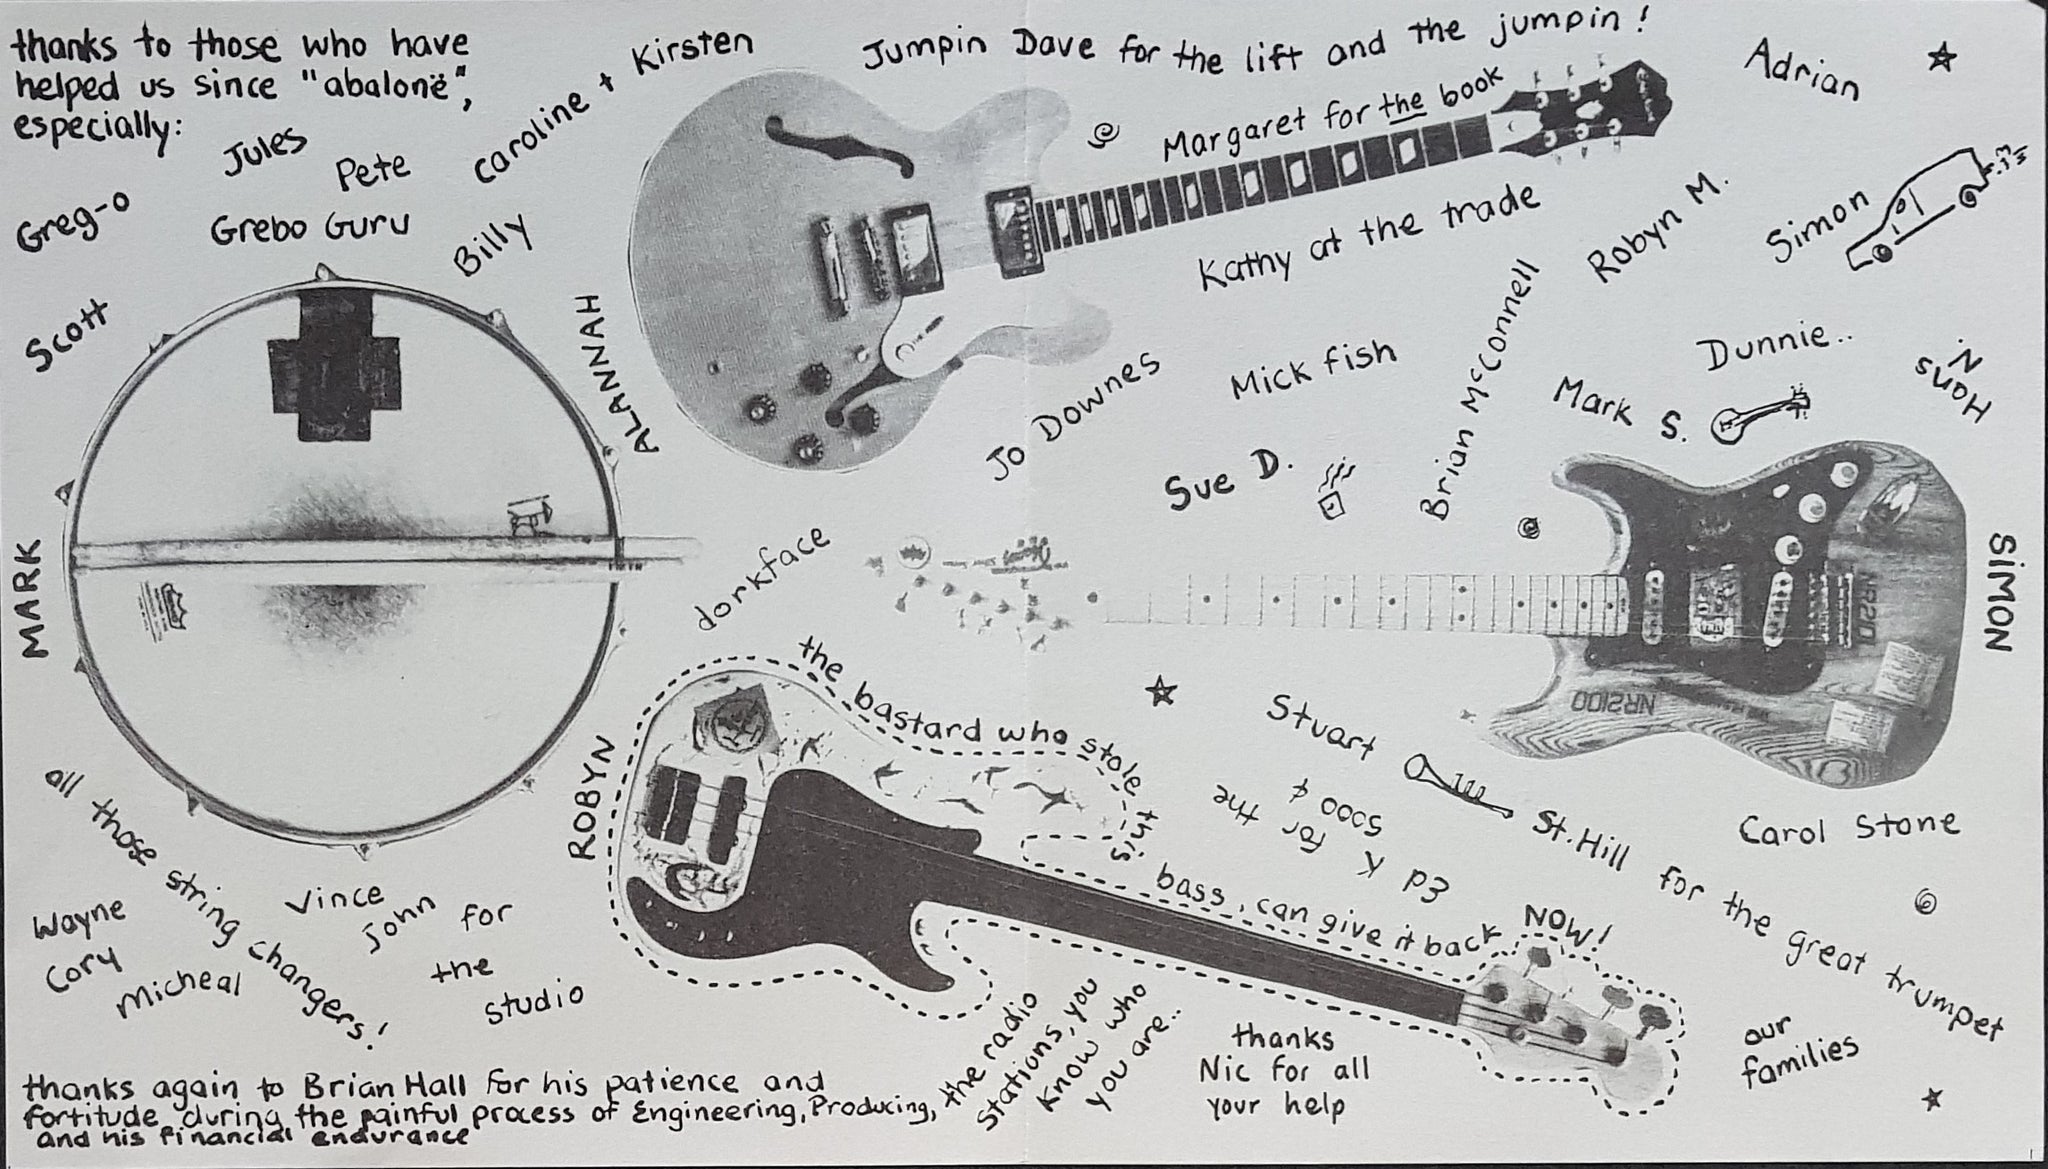 thanks to those who have
helped us since "abalonë",
especially:
Jules
Pete
Caroline + Kirsten
Greg-o
Grebo Guru
Billy
Scott
Jumpin Dave for the lift and the jumpin!
Margaret for the book
Adrian
Kathy at the trade
Robyn M.
Simon
ALANNAH
Jo Downes
Mick fish
Brian McConnell
Dunnie..
Mark S.
Hans
N.
Sue D.
MARK
dorkface
SIMON
NR2100
the bastard who stole this bass, can give it back NOW!
ROBYN
Stuart St. Hill for the great trumpet
Ed K for the
5000 ¢
Carol Stone
all those string changers!
Wayne
Cory
Micheal
Vince
John for
the
studio
the radio
stations, you
know who
you are..
thanks
Nic for all
your help
our
families
thanks again to Brian Hall for his patience and
fortitude during the painful process of Engineering, Producing,
and his financial endurance